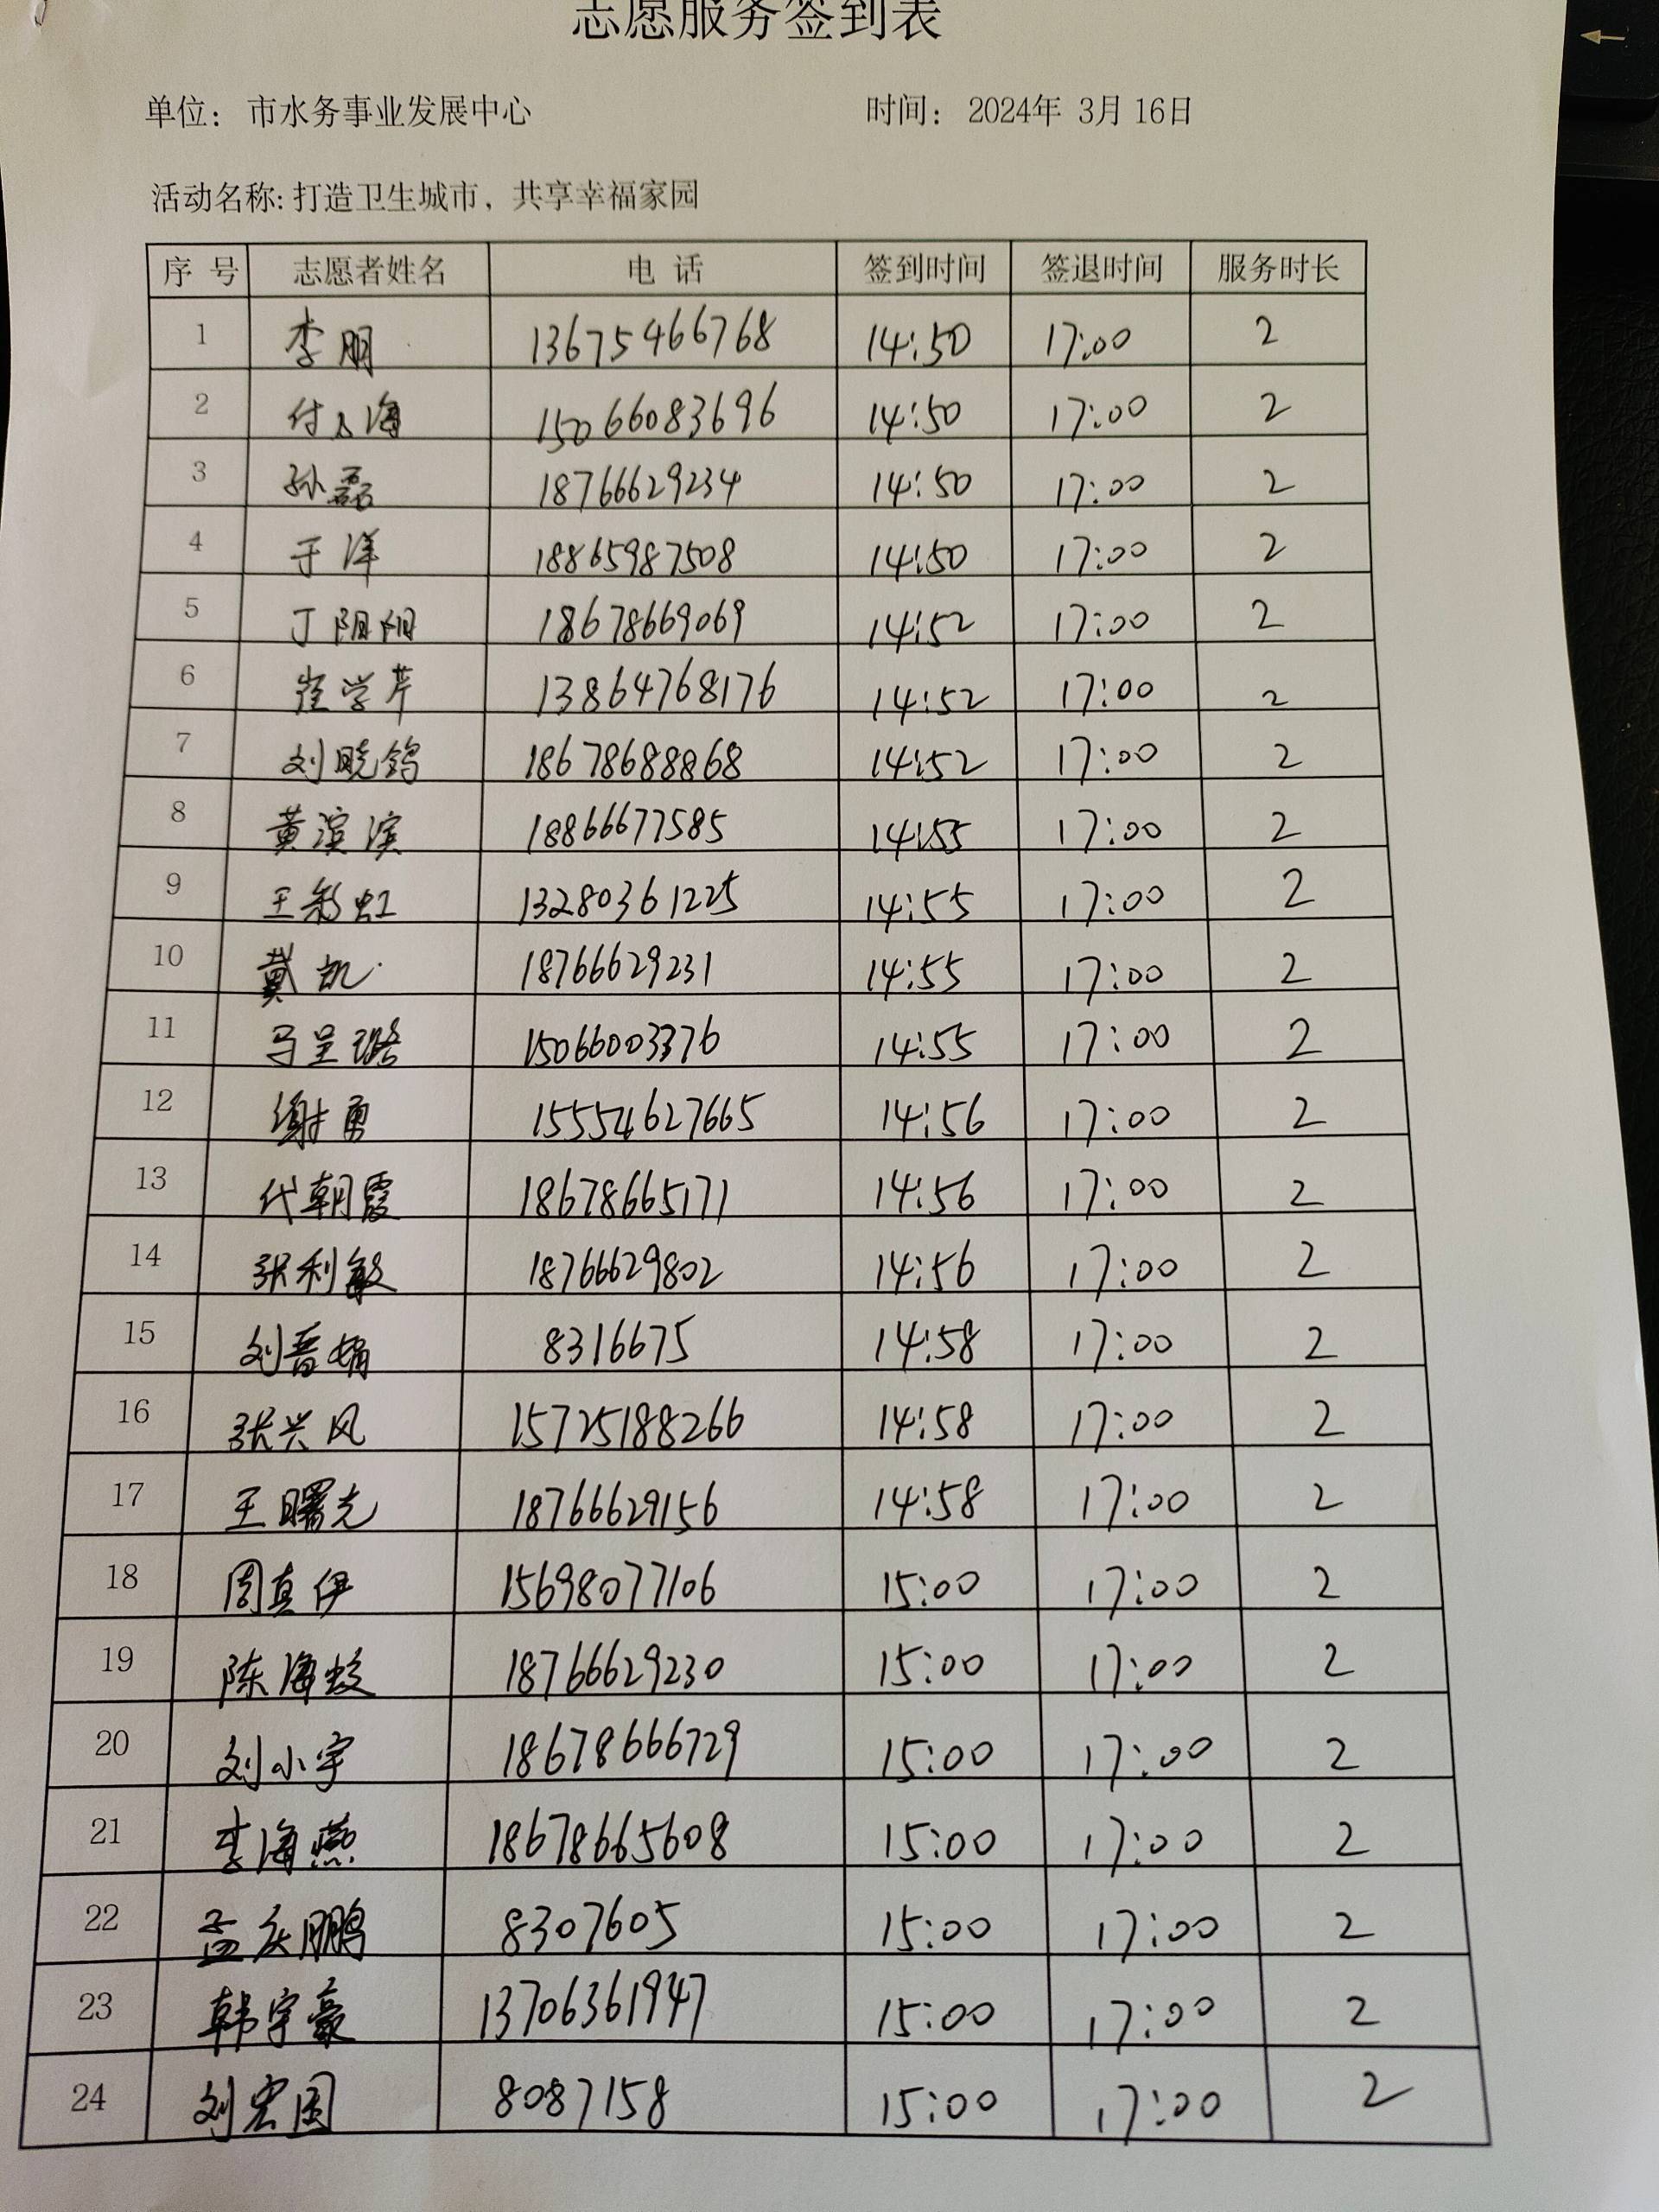 志愿服务签到表
单位： 市水务事业发展中心 时间： 2024年 3月 16日
活动名称: 打造卫生城市，共享幸福家园
序 号 志愿者姓名 电 话 签到时间 签退时间 服务时长
1 李朋 13675466768 14:50 17:00 2
2 付 海 15066083696 14:50 17:00 2
3 孙磊 18766629234 14:50 17:00 2
4 于洋 18865987508 14:50 17:00 2
5 丁阳阳 18678669069 14:52 17:00 2
6 崔学芹 13864768176 14:52 17:00 2
7 刘晓鸽 18678688868 14:52 17:00 2
8 黄滨滨 18866677585 14:55 17:00 2
9 王彩虹 13280361225 14:55 17:00 2
10 戴凯 18766629231 14:55 17:00 2
11 马呈璐 15066003376 14:55 17:00 2
12 谢勇 15554627665 14:56 17:00 2
13 代朝霞 18678665171 14:56 17:00 2
14 张利敏 18766629802 14:56 17:00 2
15 刘晋娟 8316675 14:58 17:00 2
16 张兴风 15725188266 14:58 17:00 2
17 王曙光 18766629156 14:58 17:00 2
18 周真伊 15698077106 15:00 17:00 2
19 陈海蛟 18766629230 15:00 17:00 2
20 刘小宇 18678666729 15:00 17:00 2
21 李海燕 18678665608 15:00 17:00 2
22 孟庆鹏 8307605 15:00 17:00 2
23 韩宇豪 13706361947 15:00 17:00 2
24 刘宏国 8087158 15:00 17:00 2